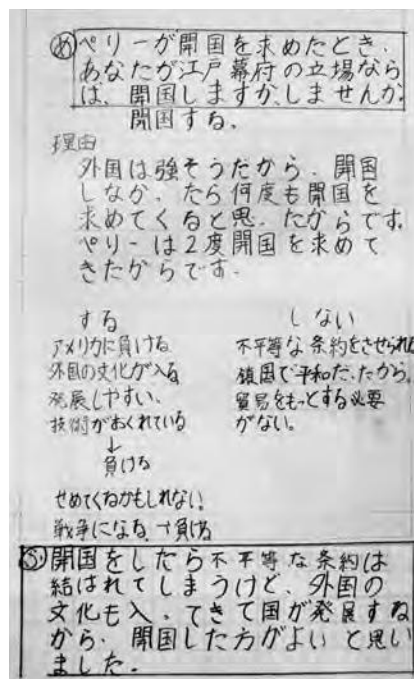 め ペリーが開国を求めたとき、
あなたが江戸幕府の立場なら
ば、開国しますか、しませんか。
開国する。
理由
外国は強そうだから、開国
しなかったら何度も開国を
求めてくると思ったからです。
ペリーは2度開国を求めて
きたからです。
する
アメリカに負ける
外国の文化が入る
発展しやすい、
技術がおくれている
↓
負ける
せめてくるかもしれない。
戦争になる→負ける
しない
不平等な条約をさせられる
鎖国で平和だったから。
貿易をもっとする必要
がない。
開国をしたら不平等な条約は
結ばれてしまうけど、外国の
文化も入ってきて国が発展する
から、開国した方がよいと思い
ました。